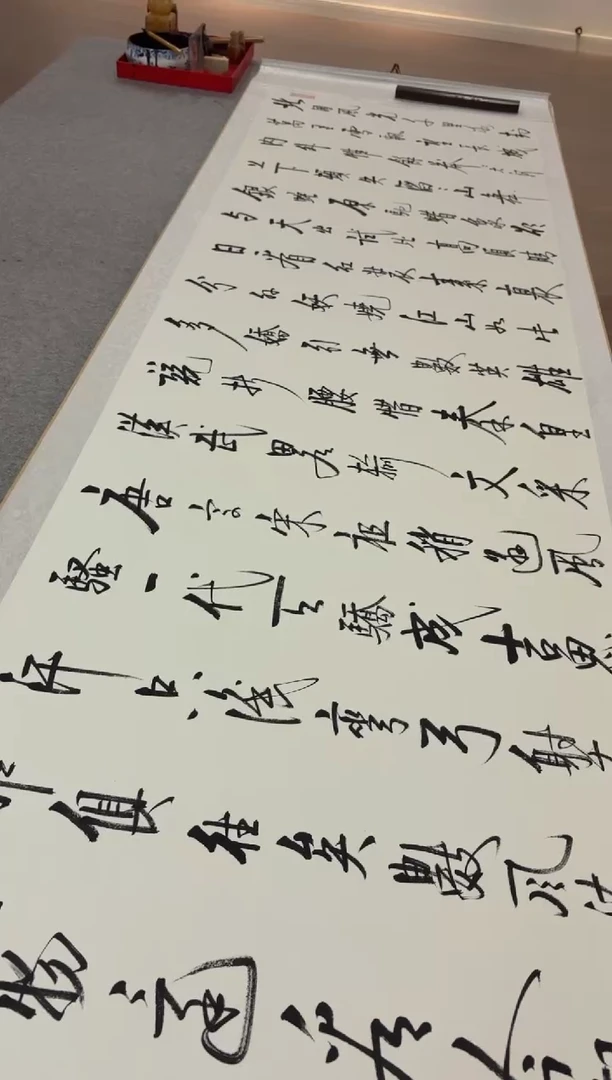 北國風光千里冰封
萬里雪飄望長城
內外惟餘莽莽大河
上下頓失滔滔山舞
銀蛇原馳蠟象欲
與天公試比高須晴
日看紅裝素裹
分外妖嬈江山如此
多嬌引無數英雄
競折腰惜秦皇
漢武略輸文采
唐宗宋祖稍遜風
騷一代天驕成吉思
汗只識彎弓射
俱往矣數風流
物還看今